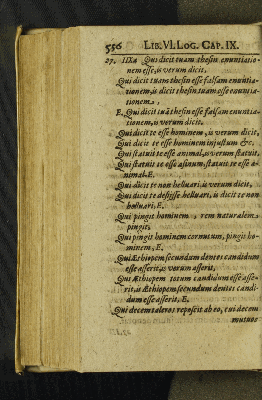 556 LIB. VI. LOG. CAP. IX.
27. IIXa Qui dicit tuam thesin enuntiatio-
nem esse, is verum dicit.
Qui dicit tuam thesin esse falsam enuntia-
tionem, is dicit thesin tuam esse enuntia-
tionem.
E. Qui dicit tuã thesin esse falsam enuntia-
tionem, is verum dicit.
Qui dicit te esse hominem, is verum dicit,
Qui dicit te esse hominem injustum &c.
Qui statuit te esse animal, is verum statuit,
Qui statuit te esse asinum, statuit te esse a-
nimal. E.
Qui dicit te non helluari, is verum dicit,
Qui dicit te desiisse helluari, is dicit te non
helluari, E.
Qui pingit hominem, rem naturalem
pingit,
Qui pingit hominem cornutum, pingit ho-
minem, E.
Qui Æthiopem secundum dentes candidum
esse asserit, is verum asserit,
Qui Æthiopem totum candidum esse asse-
rit, is Æthiopem secundum dentes candi-
dum esse asserit, E.
Qui decem taleros reposcit ab eo, cui decem
mutuos